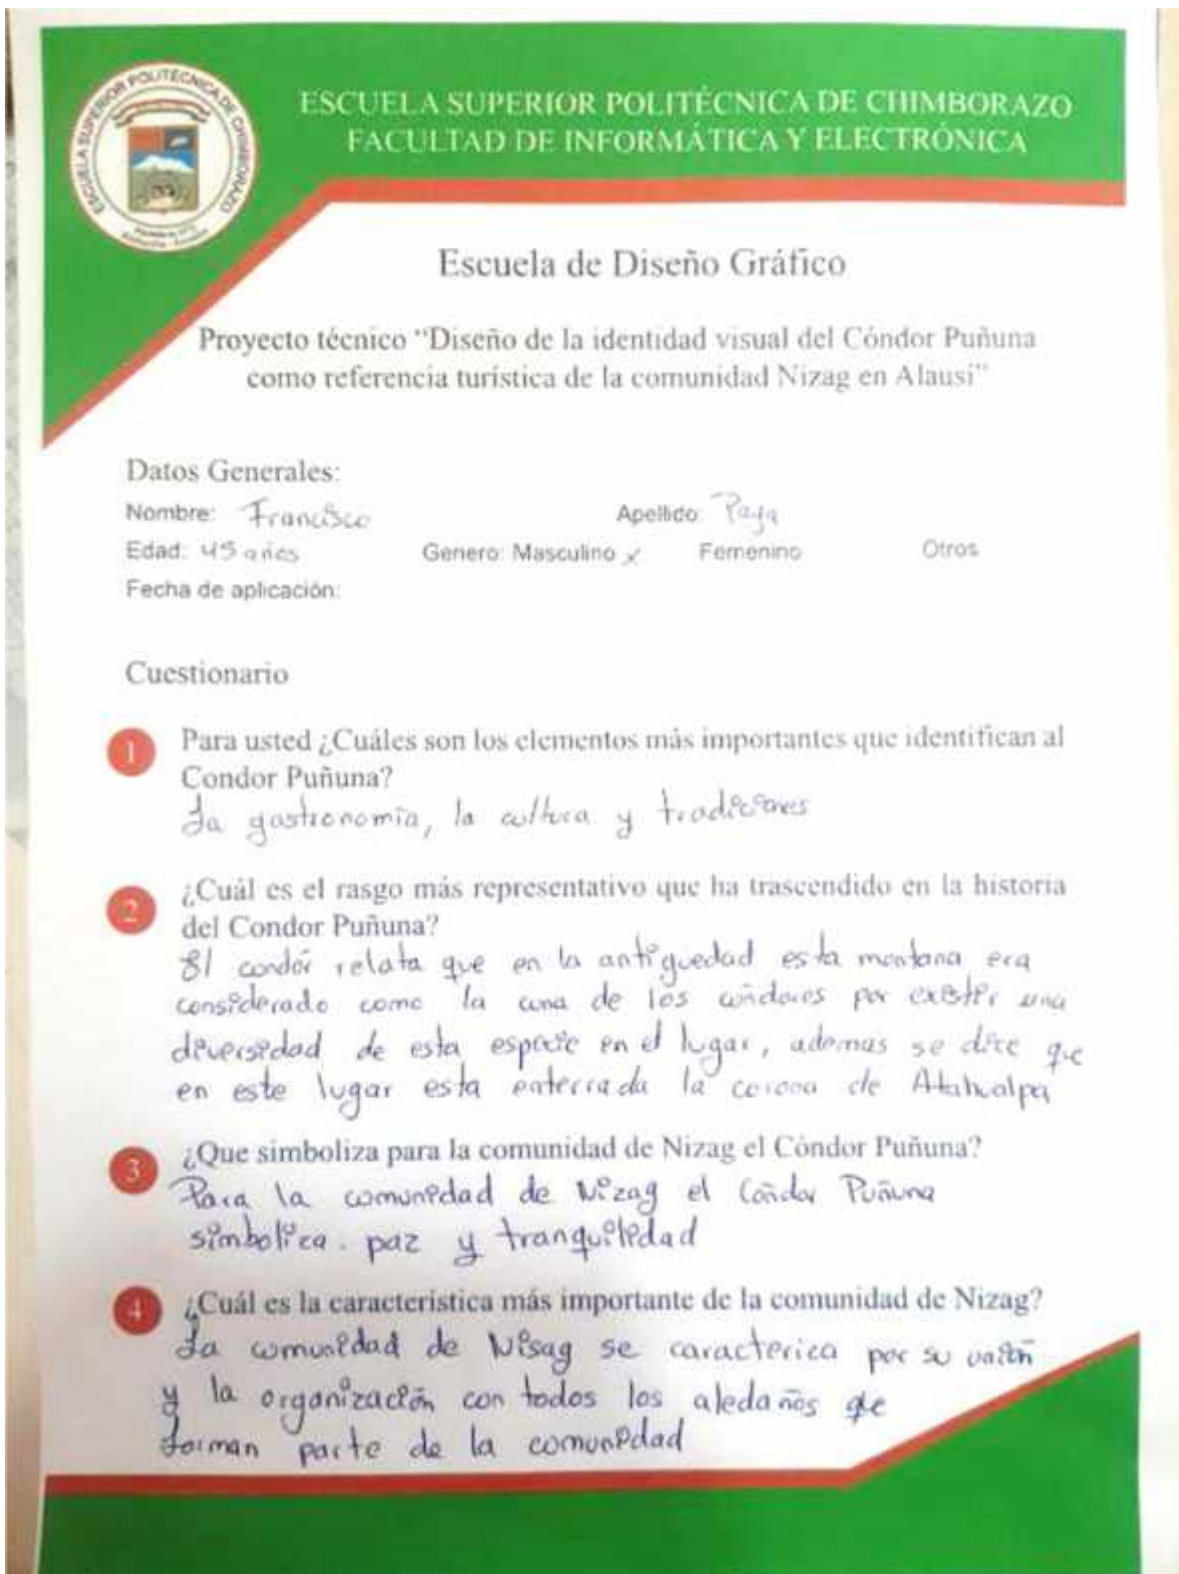 ESCUELA SUPERIOR POLITÉCNICA DE CHIMBORAZO
ESCUELA SUPERIOR POLITÉCNICA DE CHIMBORAZO
FACULTAD DE INFORMÁTICA Y ELECTRÓNICA
Escuela de Diseño Gráfico
Proyecto técnico “Diseño de la identidad visual del Cóndor Puñuna
como referencia turística de la comunidad Nizag en Alausí”
Datos Generales:
Nombre: Francisco Apellido: Paya
Edad: 45 años Genero: Masculino x Femenino Otros
Fecha de aplicación:
Cuestionario
1 Para usted ¿Cuáles son los elementos más importantes que identifican al
Condor Puñuna?
La gastronomía, la cultura y tradiciones
2 ¿Cuál es el rasgo más representativo que ha trascendido en la historia
del Condor Puñuna?
El condór relata que en la antiguedad esta montana era
considerado como la cuna de los cóndores por existir una
diversidad de esta especie en el lugar, ademas se dice que
en este lugar esta enterrada la corona de Atahualpa
3 ¿Que simboliza para la comunidad de Nizag el Cóndor Puñuna?
Para la comunidad de Nizag el Cóndor Puñuna
simboliza. paz y tranquilidad
4 ¿Cuál es la característica más importante de la comunidad de Nizag?
La comunidad de Nisag se caracterica por su unión
y la organización con todos los aledaños que
forman parte de la comunidad